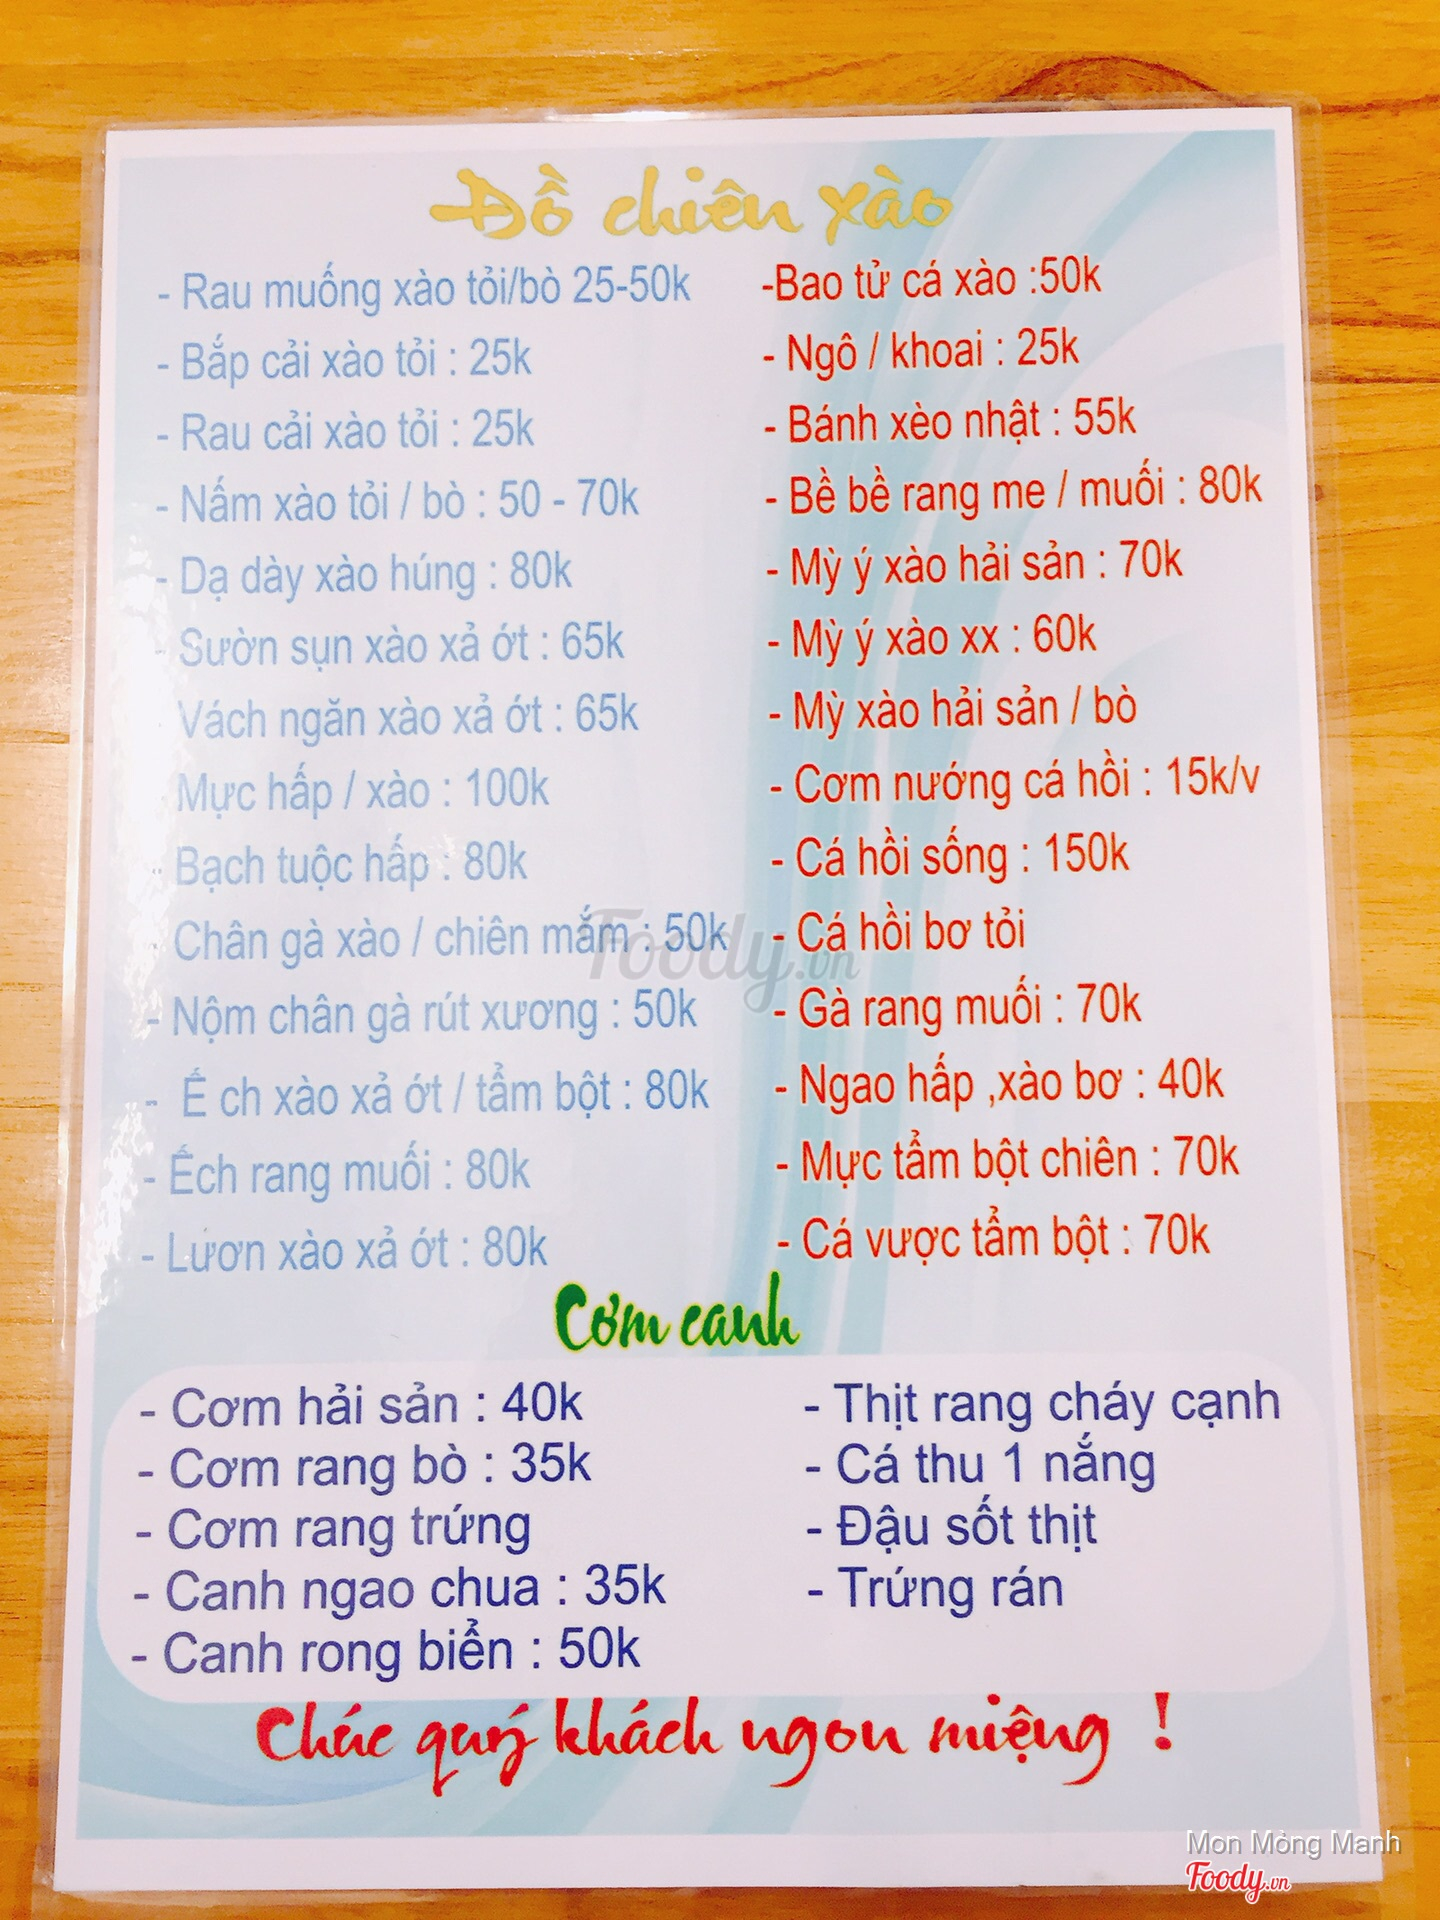 Đồ chiên xào
- Rau muống xào tỏi/bò 25-50k
- Bắp cải xào tỏi : 25k
- Rau cải xào tỏi : 25k
- Nấm xào tỏi / bò : 50 - 70k
- Dạ dày xào húng : 80k
- Sườn sụn xào xả ớt : 65k
Vách ngăn xào xả ớt : 65k
Mực hấp / xào : 100k
- Bạch tuộc hấp : 80k
- Chân gà xào / chiên mắm : 50k
- Nộm chân gà rút xương : 50k
- Ế ch xào xả ớt / tẩm bột : 80k
- Ếch rang muối : 80k
- Lươn xào xả ớt : 80k
-Bao tử cá xào :50k
- Ngô / khoai : 25k
- Bánh xèo nhật : 55k
- Bề bề rang me / muối : 80k
- Mỳ ý xào hải sản : 70k
- Mỳ ý xào xx : 60k
- Mỳ xào hải sản / bò
- Cơm nướng cá hồi : 15k/v
- Cá hồi sống : 150k
- Cá hồi bơ tỏi
- Gà rang muối : 70k
- Ngao hấp ,xào bơ : 40k
- Mực tẩm bột chiên : 70k
- Cá vược tẩm bột : 70k
Foody.vn
Cơm canh
- Cơm hải sản : 40k
- Cơm rang bò : 35k
- Cơm rang trứng
- Canh ngao chua : 35k
- Canh rong biển : 50k
- Thịt rang cháy cạnh
- Cá thu 1 nắng
- Đậu sốt thịt
- Trứng rán
Chúc quý khách ngon miệng !
Mon Mỏng Manh
Foody.vn